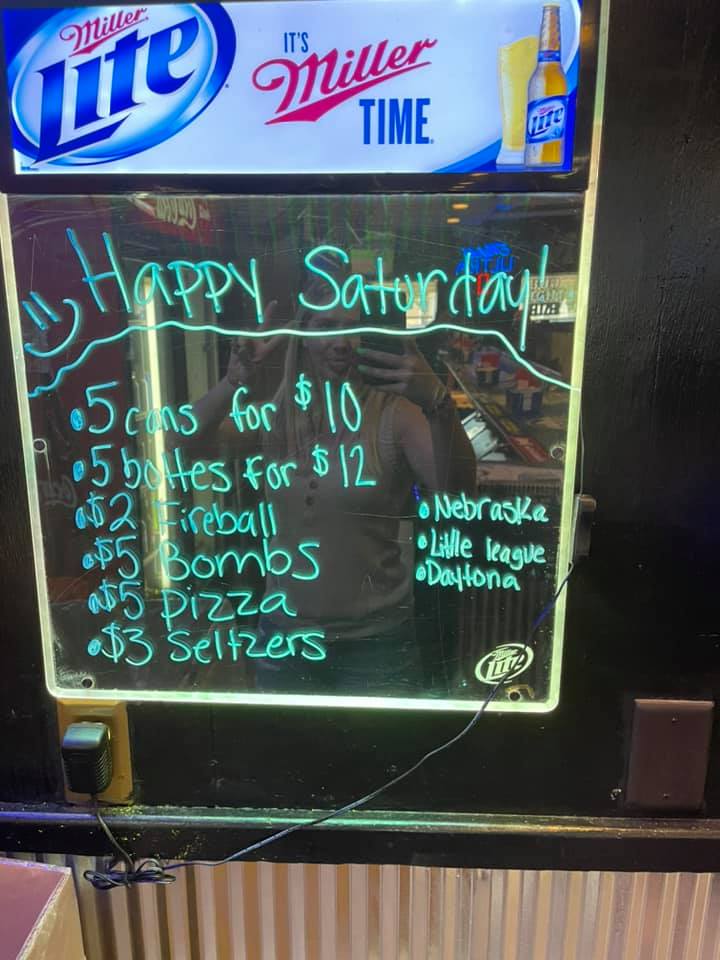 Miller
Lite
IT'S
Miller
TIME
Lite
Happy Saturday!
5 cans for $10
5 bottles for $12
$2 Fireball
$5 Bombs
$5 pizza
$3 Seltzers
Nebraska
Little league
Daytona
Miller
Lite